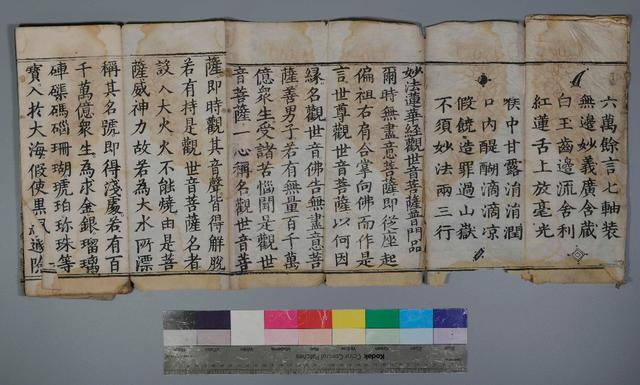 六萬餘言七軸裝
無邊妙義廣含藏
白玉齒邊流舍利
紅蓮舌上放毫光
喉中甘露涓涓潤
口內醍醐滴滴凉
假饒造罪過山嶽
不須妙法兩三行
妙法蓮華經觀世音菩薩普門品
爾時無盡意菩薩即從座起
偏袒右肩合掌向佛而作是
言世尊觀世音菩薩以何因
緣名觀世音佛告無盡意菩
薩善男子若有無量百千萬
億衆生受諸苦惱聞是觀世
音菩薩一心稱名觀世音菩
薩即時觀其音聲皆得解脫
若有持是觀世音菩薩名者
設入大火火不能燒由是菩
薩威神力故若為大水所漂
稱其名號即得淺處若有百
千萬億衆生為求金銀瑠璃
硨磲碼碯珊瑚琥珀珍珠等
寶入於大海假使黑風
Kodak Color Control Patches